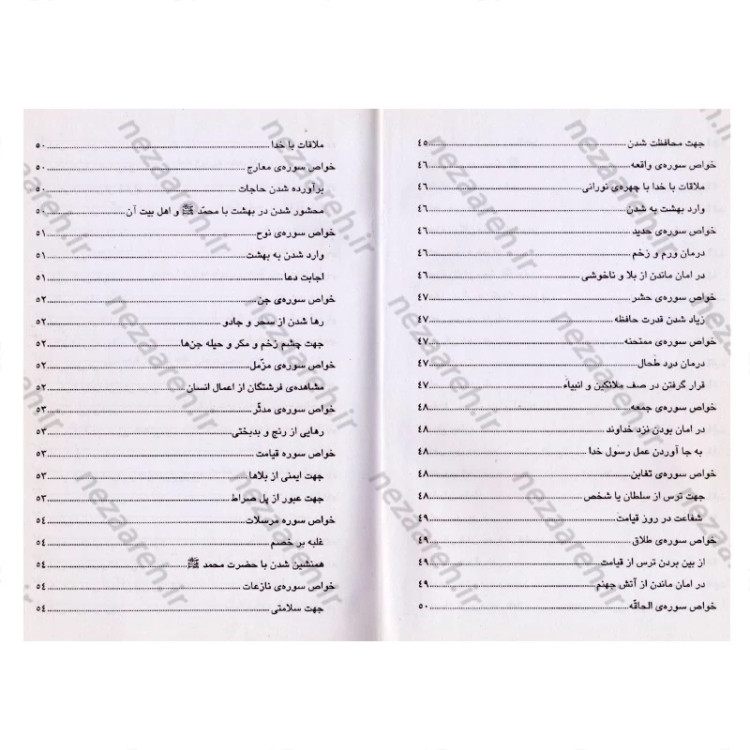 جهت محافظت شدن ........ ٤٥
خواص سوره‌ی واقعه ........ ٤٦
ملاقات با خدا با چهره‌ی نورانی ........ ٤٦
وارد بهشت به شدن ........ ٤٦
خواص سوره‌ی حدید ........ ٤٦
درمان ورم و زخم ........ ٤٦
در امان ماندن از بلا و ناخوشی ........ ٤٦
خواص سوره‌ی حشر ........ ٤٧
زیاد شدن قدرت حافظه ........ ٤٧
خواص سوره‌ی ممتحنه ........ ٤٧
درمان درد طحال ........ ٤٧
قرار گرفتن در صف ملائکین و انبیاء ........ ٤٧
خواص سوره‌ی جمعه ........ ٤٨
در امان بودن نزد خداوند ........ ٤٨
به جا آوردن عمل رسول خدا ........ ٤٨
خواص سوره‌ی تغابن ........ ٤٨
جهت ترس از سلطان یا شخص ........ ٤٨
شفاعت در روز قیامت ........ ٤٩
خواص سوره‌ی طلاق ........ ٤٩
از بین بردن ترس از قیامت ........ ٤٩
در امان ماندن از آتش جهنم ........ ٤٩
خواص سوره‌ی الحاقّه ........ ٥٠
ملاقات با خدا ........ ٥٠
خواص سوره‌ی معارج ........ ٥٠
برآورده شدن حاجات ........ ٥٠
محشور شدن در بهشت با محمّد ﷺ و اهل بیت آن ........ ٥٠
خواص سوره‌ی نوح ........ ٥١
وارد شدن به بهشت ........ ٥١
اجابت دعا ........ ٥١
خواص سوره‌ی جن ........ ٥٢
رها شدن از سحر و جادو ........ ٥٢
جهت چشم زخم و مکر و حیله جن‌ها ........ ٥٢
خواص سوره‌ی مزّمل ........ ٥٢
مشاهده‌ی فرشتگان از اعمال انسان ........ ٥٢
خواص سوره‌ی مدثّر ........ ٥٣
رهایی از رنج و بدبختی ........ ٥٣
خواص سوره قیامت ........ ٥٣
جهت ایمنی از بلاها ........ ٥٣
جهت عبور از پل صراط ........ ٥٣
خواص سوره مرسلات ........ ٥٤
غلبه بر خصم ........ ٥٤
همنشین شدن با حضرت محمد ﷺ ........ ٥٤
خواص سوره‌ی نازعات ........ ٥٤
جهت سلامتی ........ ٥٤
nezaareh.ir